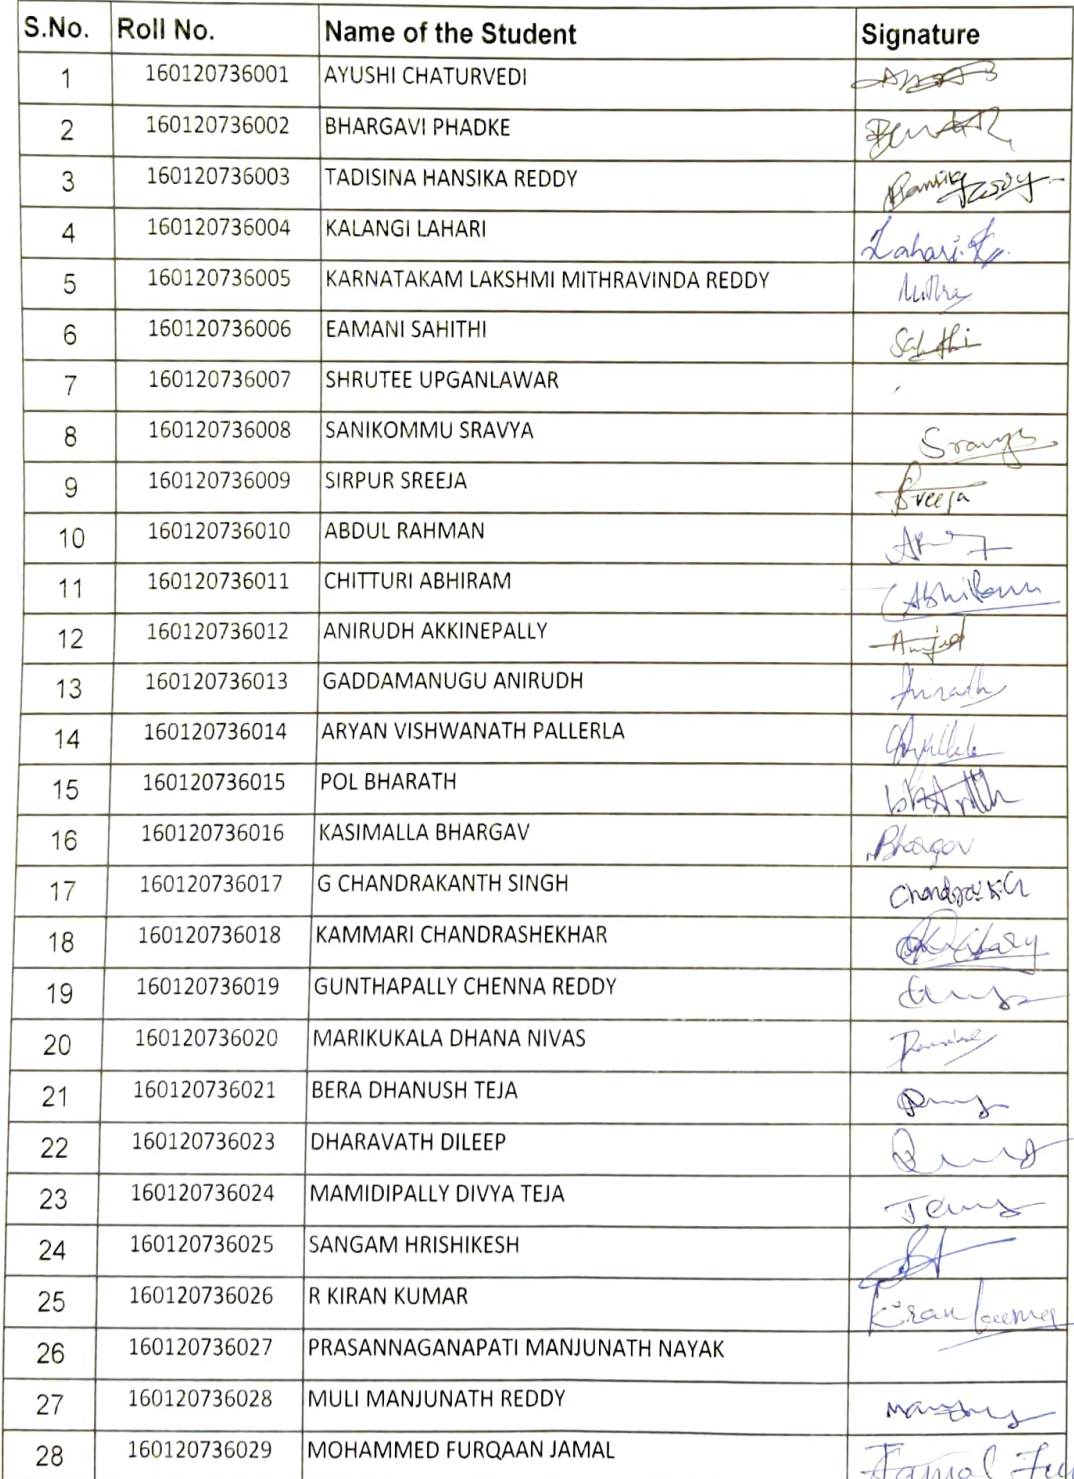 S.No. Roll No. Name of the Student Signature
1 160120736001 AYUSHI CHATURVEDI
2 160120736002 BHARGAVI PHADKE
3 160120736003 TADISINA HANSIKA REDDY Hansika Reddy
4 160120736004 KALANGI LAHARI Lahari.K
5 160120736005 KARNATAKAM LAKSHMI MITHRAVINDA REDDY Mithra
6 160120736006 EAMANI SAHITHI Sahithi
7 160120736007 SHRUTEE UPGANLAWAR
8 160120736008 SANIKOMMU SRAVYA Sravya
9 160120736009 SIRPUR SREEJA Sreeja
10 160120736010 ABDUL RAHMAN
11 160120736011 CHITTURI ABHIRAM AbhiRam
12 160120736012 ANIRUDH AKKINEPALLY
13 160120736013 GADDAMANUGU ANIRUDH Anirudh
14 160120736014 ARYAN VISHWANATH PALLERLA
15 160120736015 POL BHARATH
16 160120736016 KASIMALLA BHARGAV Bhargav
17 160120736017 G CHANDRAKANTH SINGH
18 160120736018 KAMMARI CHANDRASHEKHAR
19 160120736019 GUNTHAPALLY CHENNA REDDY
20 160120736020 MARIKUKALA DHANA NIVAS
21 160120736021 BERA DHANUSH TEJA
22 160120736023 DHARAVATH DILEEP
23 160120736024 MAMIDIPALLY DIVYA TEJA
24 160120736025 SANGAM HRISHIKESH
25 160120736026 R KIRAN KUMAR Kiran kumar
26 160120736027 PRASANNAGANAPATI MANJUNATH NAYAK
27 160120736028 MULI MANJUNATH REDDY
28 160120736029 MOHAMMED FURQAAN JAMAL Jamal